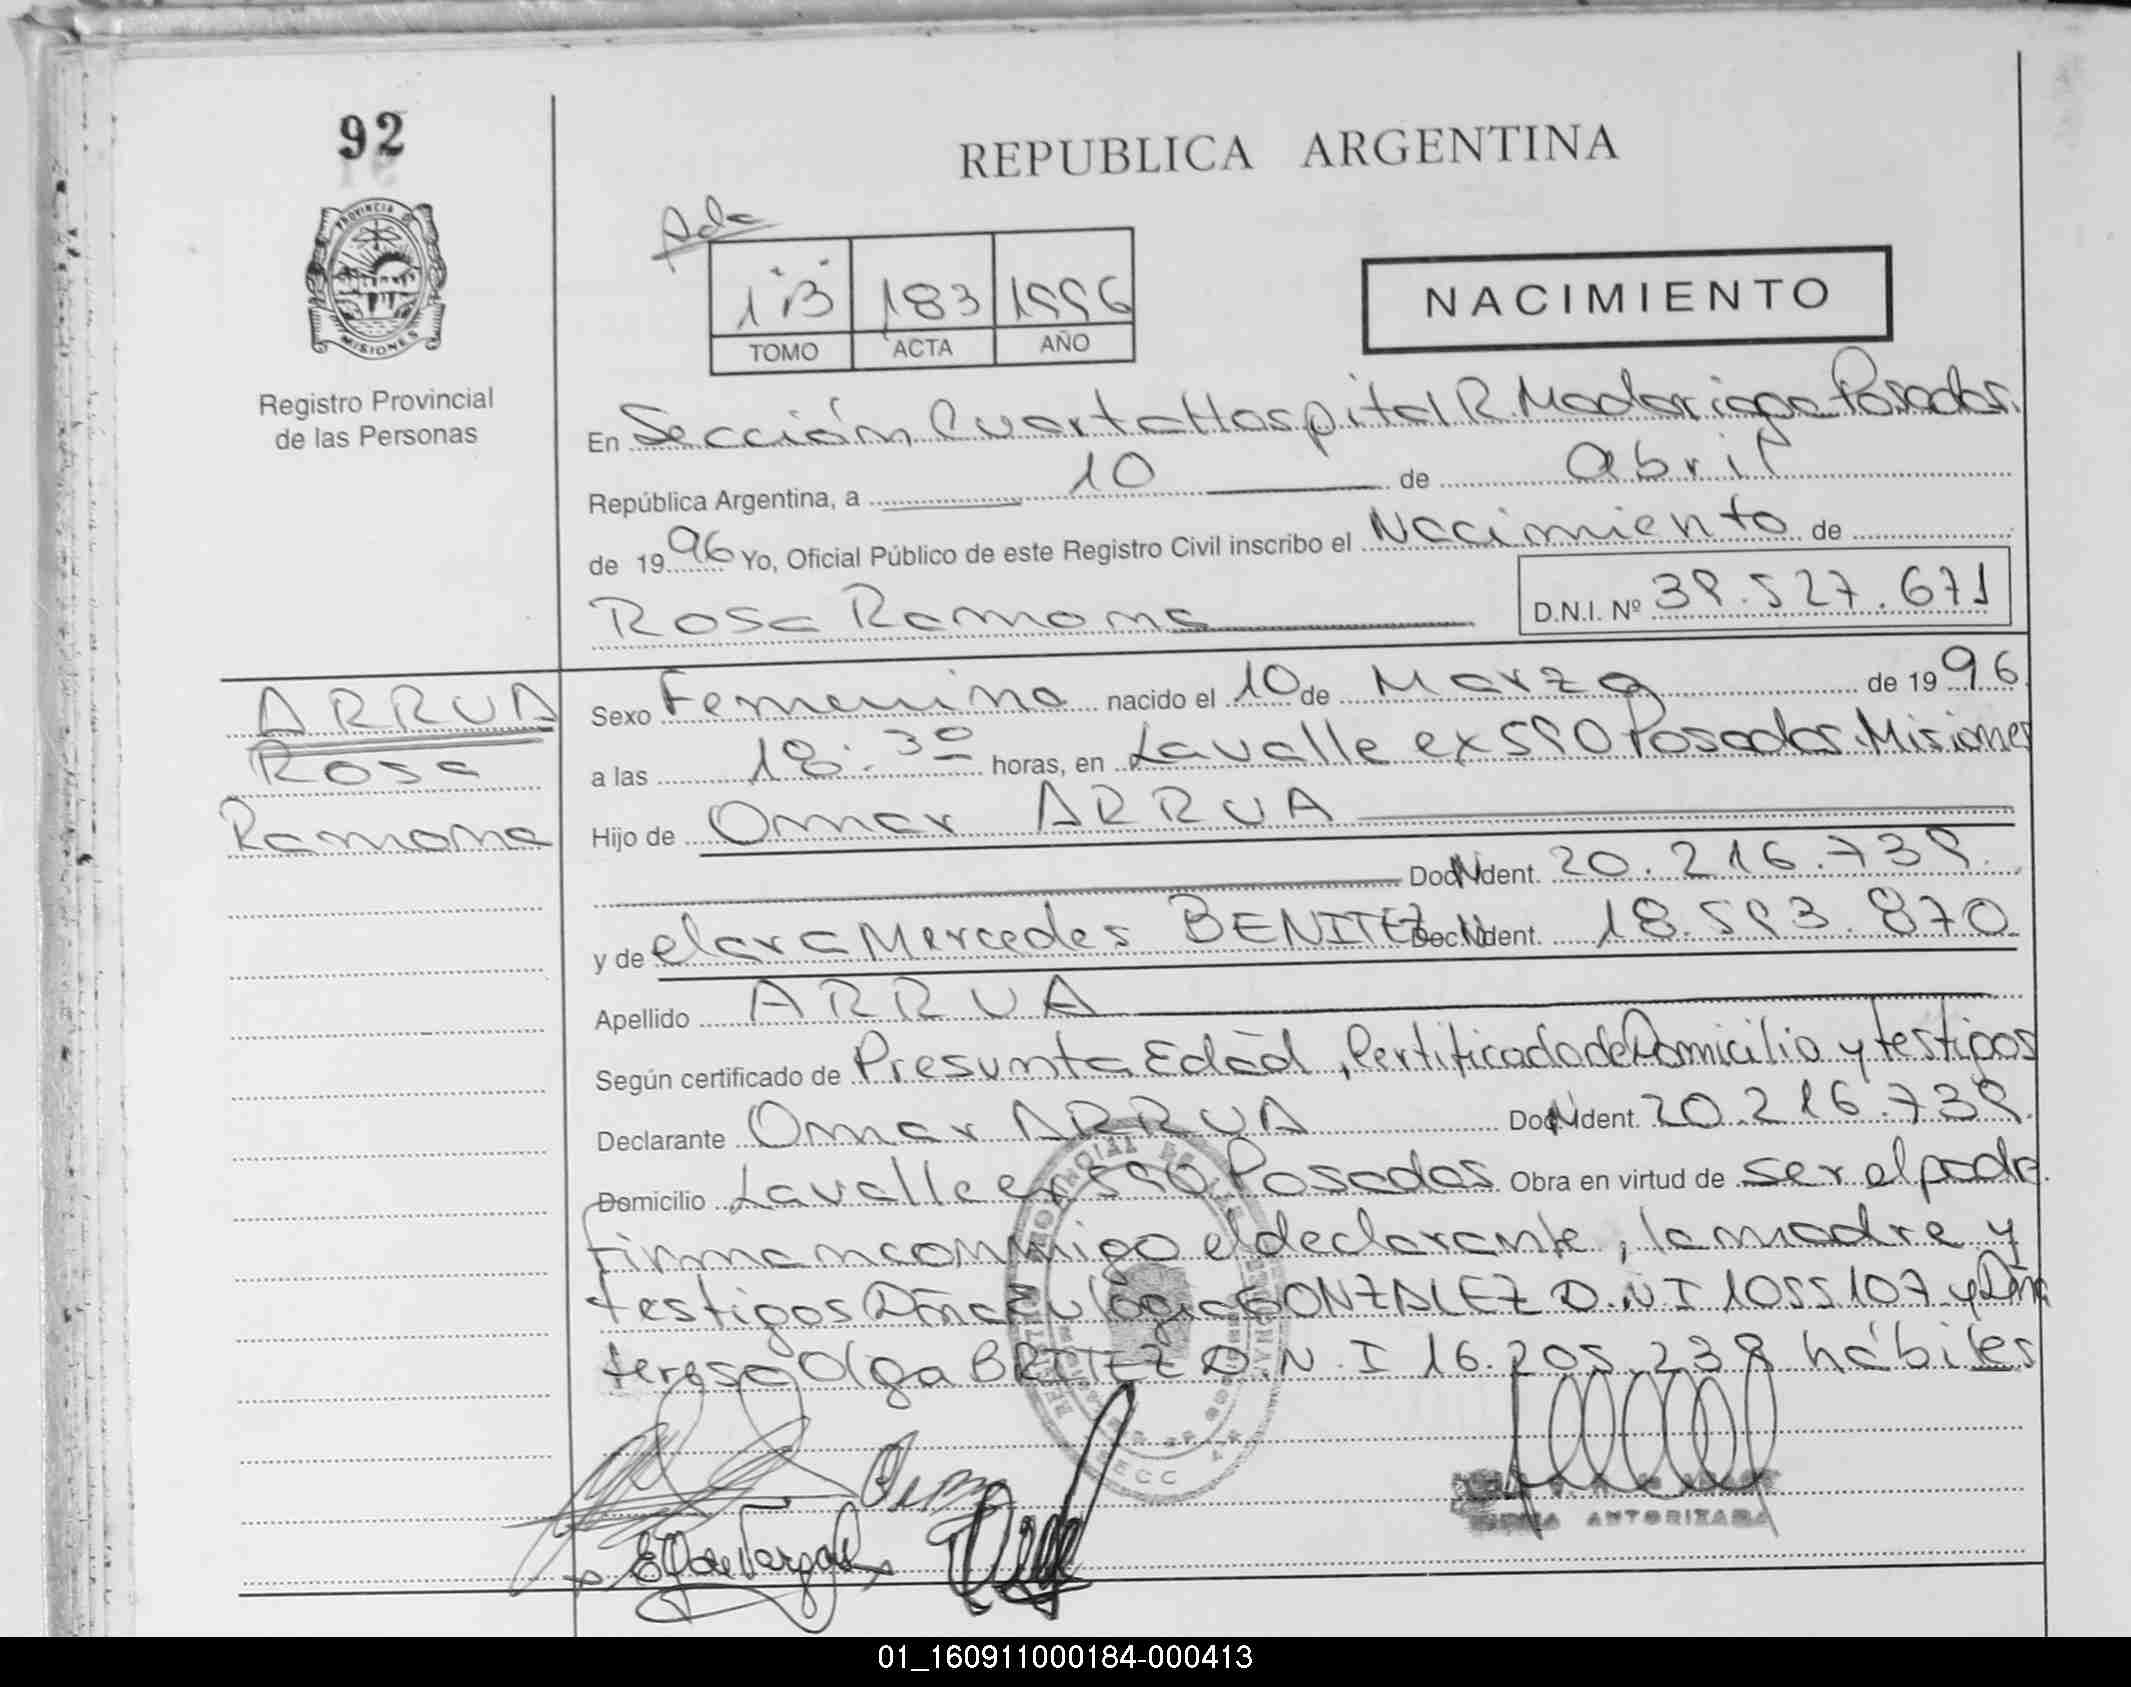 92
REPUBLICA ARGENTINA
PROVINCIA D
MISIONES
Registro Provincial
de las Personas
1 "B" 183 1996
TOMO ACTA AÑO
NACIMIENTO
En Sección Cuarta Hospital R. Madariaga Posadas.
República Argentina, a 10 de abril
de 1996 Yo, Oficial Público de este Registro Civil inscribo el Nacimiento de
Rosa Ramona D.N.I. Nº 39.527.671
ARRUA
Rosa
Ramona
Sexo Femenino nacido el 10 de Marzo de 1996
a las 18:30 horas, en Lavalle ex 590 Posadas Misiones
Hijo de Omar ARRUA
Doc. Ident. 20.216.739.
y de Clara Mercedes BENITEZ Doc. Ident. 18.593.870
Apellido ARRUA
Según certificado de Presunta Edad, Certificado de Domicilio y testigos
Declarante Omar ARRUA Doc. Ident. 20.216.739.
Domicilio Lavalle ex 590 Posadas Obra en virtud de ser el padre
firman conmigo el declarante, la madre y
testigos Doña Eulogia GONZALEZ D.N.I 1055107 y Doña
teresa Olga BRITEZ D.N.I 16.205.239 hábiles
SECC 4
FIRMA AUTORIZADA
01_160911000184-000413